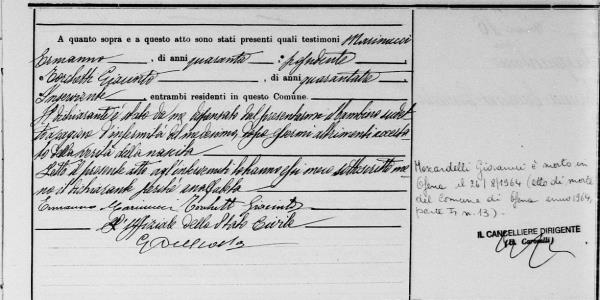 A quanto sopra e a questo atto sono stati presenti quali testimoni Marinucci
Ermanno, di anni quaranta, possidente
e Torchetti Giacinto, di anni quaranta
Inserviente, entrambi residenti in questo Comune.
Il dichiarante è stato da me dispensato dal presentarmi il bambino
a cagione d'infermità
della verità della nascita
Letto il presente atto agl'intervenuti lo hanno essi meco sottoscritto me
no il dichiarante perchè analfabeta
Ermanno Marinucci Torchetti Giacinto
L'Uffiziale dello Stato Civile
Giovanni è morto in
Ofena il 26/8/1964 (atto di morte
del Comune di Ofena anno 1964,
parte I, n. 13).
IL CANCELLIERE DIRIGENTE